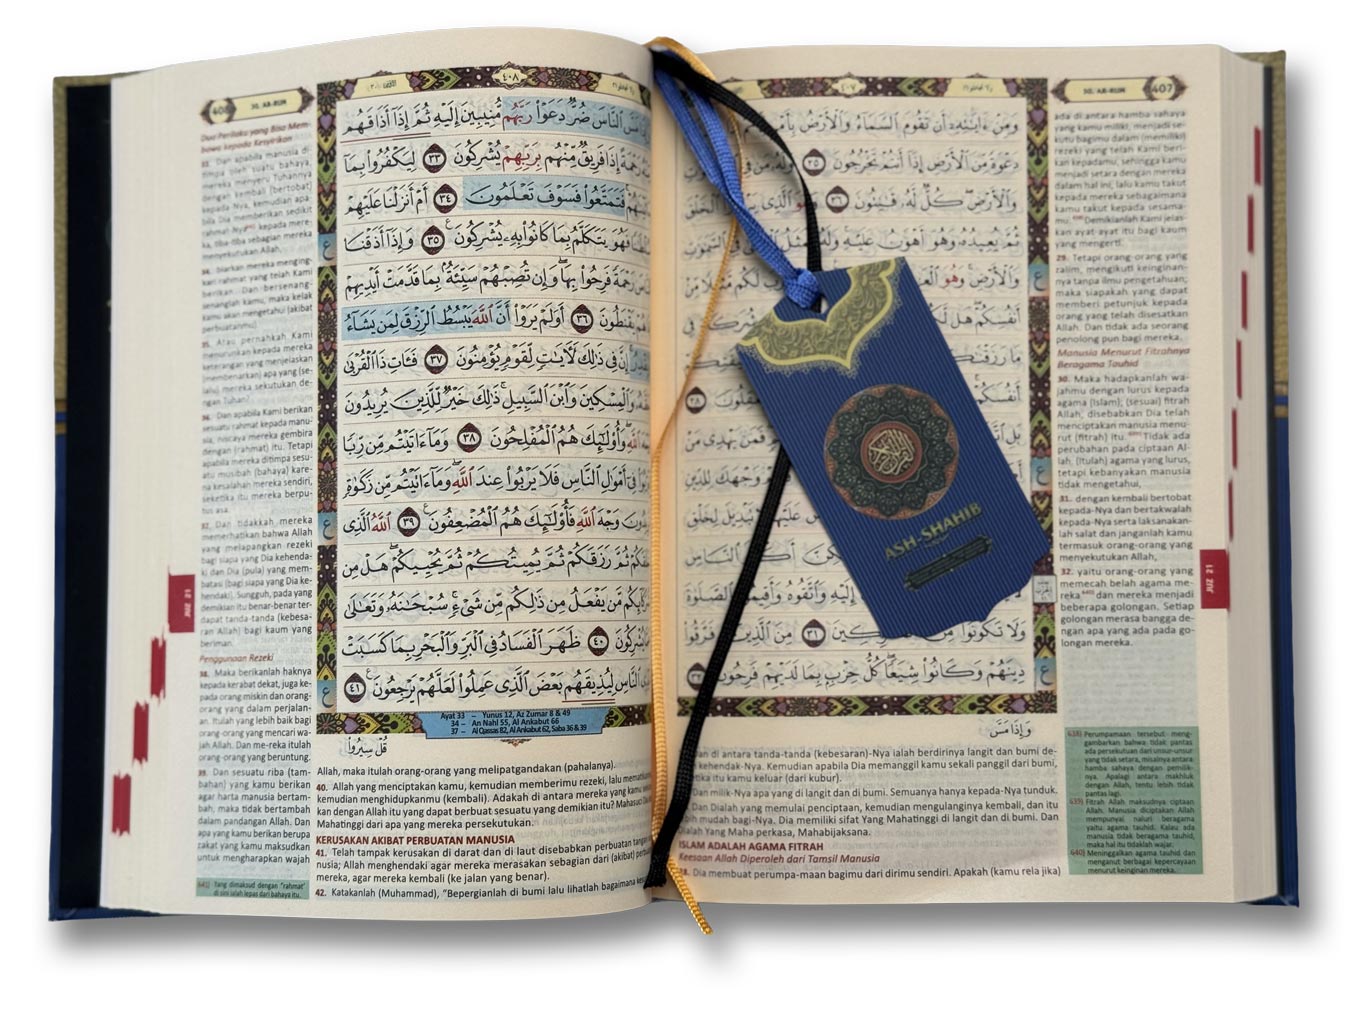 30. AR-RUM
407
وَمِنْ ءَايَٰتِهِۦٓ أَن تَقُومَ ٱلسَّمَآءُ وَٱلْأَرْضُ
دَعْوَةً مِّنَ ٱلْأَرْضِ إِذَآ أَنتُمْ تَخْرُجُونَ ٢٥ وَلَهُۥ مَن فِى
وَٱلْأَرْضِ كُلٌّ لَّهُۥ قَٰنِتُونَ ٢٦ وَهُوَ ٱلَّذِى
ثُمَّ يُعِيدُهُۥ وَهُوَ أَهْوَنُ عَلَيْهِ وَلَهُ ٱلْمَثَلُ
وَٱلْأَرْضِ وَهُوَ
أَنفُسِكُمْ هَل
مَّا رَزَقْنَٰكُمْ
أَنفُسَكُمْ
٢٨
بَلِ
فَمَن يَهْدِى مَنْ
وَجْهَكَ لِلدِّينِ
لَا تَبْدِيلَ لِخَلْقِ
ٱلنَّاسِ
إِلَيْهِ وَٱتَّقُوهُ وَأَقِيمُوا۟ ٱلصَّلَوٰةَ
وَلَا تَكُونُوا۟ مِنَ ٱلْمُشْرِكِينَ ٣١ مِنَ ٱلَّذِينَ فَرَّقُوا۟
دِينَهُمْ وَكَانُوا۟ شِيَعًا كُلُّ حِزْبٍۭ بِمَا لَدَيْهِمْ فَرِحُونَ ٣٢
وَإِذَا مَسَّ
ASH-SHAHIB
dan di antara tanda-tanda (kebesaran)-Nya ialah berdirinya langit dan bumi de-
kehendak-Nya. Kemudian apabila Dia memanggil kamu sekali panggil dari bumi,
ketika itu kamu keluar (dari kubur).
Dan milik-Nya apa yang di langit dan di bumi. Semuanya hanya kepada-Nya tunduk.
Dan Dialah yang memulai penciptaan, kemudian mengulanginya kembali, dan itu
lebih mudah bagi-Nya. Dia memiliki sifat Yang Mahatinggi di langit dan di bumi. Dan
Dialah Yang Maha perkasa, Mahabijaksana.
ISLAM ADALAH AGAMA FITRAH
Keesaan Allah Diperoleh dari Tamsil Manusia
28. Dia membuat perumpa-maan bagimu dari dirimu sendiri. Apakah (kamu rela jika)
ada di antara hamba sahaya
yang kamu miliki, menjadi se-
kutu bagimu dalam (memiliki)
rezeki yang telah Kami beri-
kan kepadamu, sehingga kamu
menjadi setara dengan mereka
dalam hal ini, lalu kamu takut
kepada mereka sebagaimana
kamu takut kepada sesama-
mu. Demikianlah Kami jelas-
kan ayat-ayat itu bagi kaum
yang mengerti.
29. Tetapi orang-orang yang
zalim, mengikuti keinginan-
nya tanpa ilmu pengetahuan;
maka siapakah yang dapat
memberi petunjuk kepada
orang yang telah disesatkan
Allah. Dan tidak ada seorang
penolong pun bagi mereka.
Manusia Menurut Fitrahnya
Beragama Tauhid
30. Maka hadapkanlah wa-
jahmu dengan lurus kepada
agama (Islam); (sesuai) fitrah
Allah, disebabkan Dia telah
menciptakan manusia menu-
rut (fitrah) itu. Tidak ada
perubahan pada ciptaan Al-
lah. (Itulah) agama yang lurus,
tetapi kebanyakan manusia
tidak mengetahui,
31. dengan kembali bertobat
kepada-Nya dan bertakwalah
kepada-Nya serta laksanakan-
lah salat dan janganlah kamu
termasuk orang-orang yang
menyekutukan Allah,
32. yaitu orang-orang yang
memecah belah agama me-
reka dan mereka menjadi
beberapa golongan. Setiap
golongan merasa bangga de-
ngan apa yang ada pada go-
longan mereka.
JUZ 21
638) Perumpamaan tersebut meng-
gambarkan bahwa tidak pantas
ada persekutuan dari unsur-unsur
yang tidak setara, misalnya antara
hamba sahaya dengan pemilik-
nya. Apalagi antara makhluk
dengan Allah, tentu lebih tidak
pantas lagi.
639) Fitrah Allah maksudnya ciptaan
Allah. Manusia diciptakan Allah
mempunyai naluri beragama
yaitu agama tauhid. Kalau ada
manusia tidak beragama tauhid,
maka hal itu tidaklah wajar.
640) Meninggalkan agama tauhid dan
menganut berbagai kepercayaan
menurut keinginan mereka.
30. AR-RUM
٤٠٨
مَسَّ ٱلنَّاسَ ضُرٌّ دَعَوْا۟ رَبَّهُم مُّنِيبِينَ إِلَيْهِ ثُمَّ إِذَآ أَذَاقَهُم
رَحْمَةً إِذَا فَرِيقٌ مِّنْهُم بِرَبِّهِمْ يُشْرِكُونَ ٣٣ لِيَكْفُرُوا۟ بِمَآ
فَتَمَتَّعُوا۟ فَسَوْفَ تَعْلَمُونَ ٣٤ أَمْ أَنزَلْنَا عَلَيْهِمْ
فَهُوَ يَتَكَلَّمُ بِمَا كَانُوا۟ بِهِۦ يُشْرِكُونَ ٣٥ وَإِذَآ أَذَقْنَا
رَحْمَةً فَرِحُوا۟ بِهَا وَإِن تُصِبْهُمْ سَيِّئَةٌۢ بِمَا قَدَّمَتْ أَيْدِيهِمْ
هُمْ يَقْنَطُونَ ٣٦ أَوَلَمْ يَرَوْا۟ أَنَّ ٱللَّهَ يَبْسُطُ ٱلرِّزْقَ لِمَن يَشَآءُ
إِنَّ فِى ذَٰلِكَ لَءَايَٰتٍ لِّقَوْمٍ يُؤْمِنُونَ ٣٧ فَـَٔاتِ ذَا ٱلْقُرْبَىٰ
وَٱلْمِسْكِينَ وَٱبْنَ ٱلسَّبِيلِ ذَٰلِكَ خَيْرٌ لِّلَّذِينَ يُرِيدُونَ
ٱللَّهِ وَأُو۟لَٰٓئِكَ هُمُ ٱلْمُفْلِحُونَ ٣٨ وَمَآ ءَاتَيْتُم مِّن رِّبًا
فِىٓ أَمْوَٰلِ ٱلنَّاسِ فَلَا يَرْبُوا۟ عِندَ ٱللَّهِ وَمَآ ءَاتَيْتُم مِّن زَكَوٰةٍ
وَجْهَ ٱللَّهِ فَأُو۟لَٰٓئِكَ هُمُ ٱلْمُضْعِفُونَ ٣٩ ٱللَّهُ ٱلَّذِى
ثُمَّ رَزَقَكُمْ ثُمَّ يُمِيتُكُمْ ثُمَّ يُحْيِيكُمْ هَلْ مِن
مَّن يَفْعَلُ مِن ذَٰلِكُم مِّن شَىْءٍ سُبْحَٰنَهُۥ وَتَعَٰلَىٰ
يُشْرِكُونَ ٤٠ ظَهَرَ ٱلْفَسَادُ فِى ٱلْبَرِّ وَٱلْبَحْرِ بِمَا كَسَبَتْ
ٱلنَّاسِ لِيُذِيقَهُم بَعْضَ ٱلَّذِى عَمِلُوا۟ لَعَلَّهُمْ يَرْجِعُونَ ٤١
Ayat 33 – Yunus 12, Az Zumar 8 & 49
34 – An Nahl 55, Al Ankabut 66
37 – Al Qassas 82, Al Ankabut 62, Saba 36 & 39
قُلْ سِيرُوا۟
Dua Perilaku yang Bisa Mem-
bawa kepada Kesyirikan
33. Dan apabila manusia di-
timpa oleh suatu bahaya,
mereka menyeru Tuhannya
dengan kembali (bertobat)
kepada-Nya, kemudian apa-
bila Dia memberikan sedikit
rahmat-Nya kepada mere-
ka, tiba-tiba sebagian mereka
34. biarkan mereka menging-
kari rahmat yang telah Kami
berikan. Dan bersenang-
senanglah kamu, maka kelak
kamu akan mengetahui (akibat
perbuatanmu).
35. Atau pernahkah Kami
menurunkan kepada mereka
keterangan yang menjelaskan
(membenarkan) apa yang (se-
lalu) mereka sekutukan de-
ngan Tuhan?
36. Dan apabila Kami berikan
sesuatu rahmat kepada manu-
sia, niscaya mereka gembira
dengan (rahmat) itu. Tetapi
apabila mereka ditimpa sesu-
atu musibah (bahaya) kare-
na kesalahan mereka sendiri,
seketika itu mereka berpu-
tus asa.
37. Dan tidakkah mereka
memerhatikan bahwa Allah
yang melapangkan rezeki
bagi siapa yang Dia kehenda-
ki dan Dia (pula) yang mem-
batasi (bagi siapa yang Dia ke-
hendaki). Sungguh, pada yang
demikian itu benar-benar ter-
dapat tanda-tanda (kebesa-
ran Allah) bagi kaum yang
beriman.
Penggunaan Rezeki
38. Maka berikanlah haknya
kepada kerabat dekat, juga ke-
pada orang miskin dan orang-
orang yang dalam perjalan-
an. Itulah yang lebih baik bagi
orang-orang yang mencari wa-
jah Allah. Dan me-reka itulah
orang-orang yang beruntung.
39. Dan sesuatu riba (tam-
bahan) yang kamu berikan
agar harta manusia bertam-
bah, maka tidak bertambah
dalam pandangan Allah. Dan
apa yang kamu berikan berupa
zakat yang kamu maksudkan
untuk mengharapkan wajah
641) Yang dimaksud dengan "rahmat"
di sini ialah lepas dari bahaya itu.
JUZ 21
Allah, maka itulah orang-orang yang melipatgandakan (pahalanya).
40. Allah yang menciptakan kamu, kemudian memberimu rezeki, lalu mematikan
kemudian menghidupkanmu (kembali). Adakah di antara mereka yang kamu
kan dengan Allah itu yang dapat berbuat sesuatu yang demikian itu? Mahasuci Dia
Mahatinggi dari apa yang mereka persekutukan.
KERUSAKAN AKIBAT PERBUATAN MANUSIA
41. Telah tampak kerusakan di darat dan di laut disebabkan perbuatan tangan
nusia; Allah menghendaki agar mereka merasakan sebagian dari (akibat)
mereka, agar mereka kembali (ke jalan yang benar).
42. Katakanlah (Muhammad), "Bepergianlah di bumi lalu lihatlah bagaimana